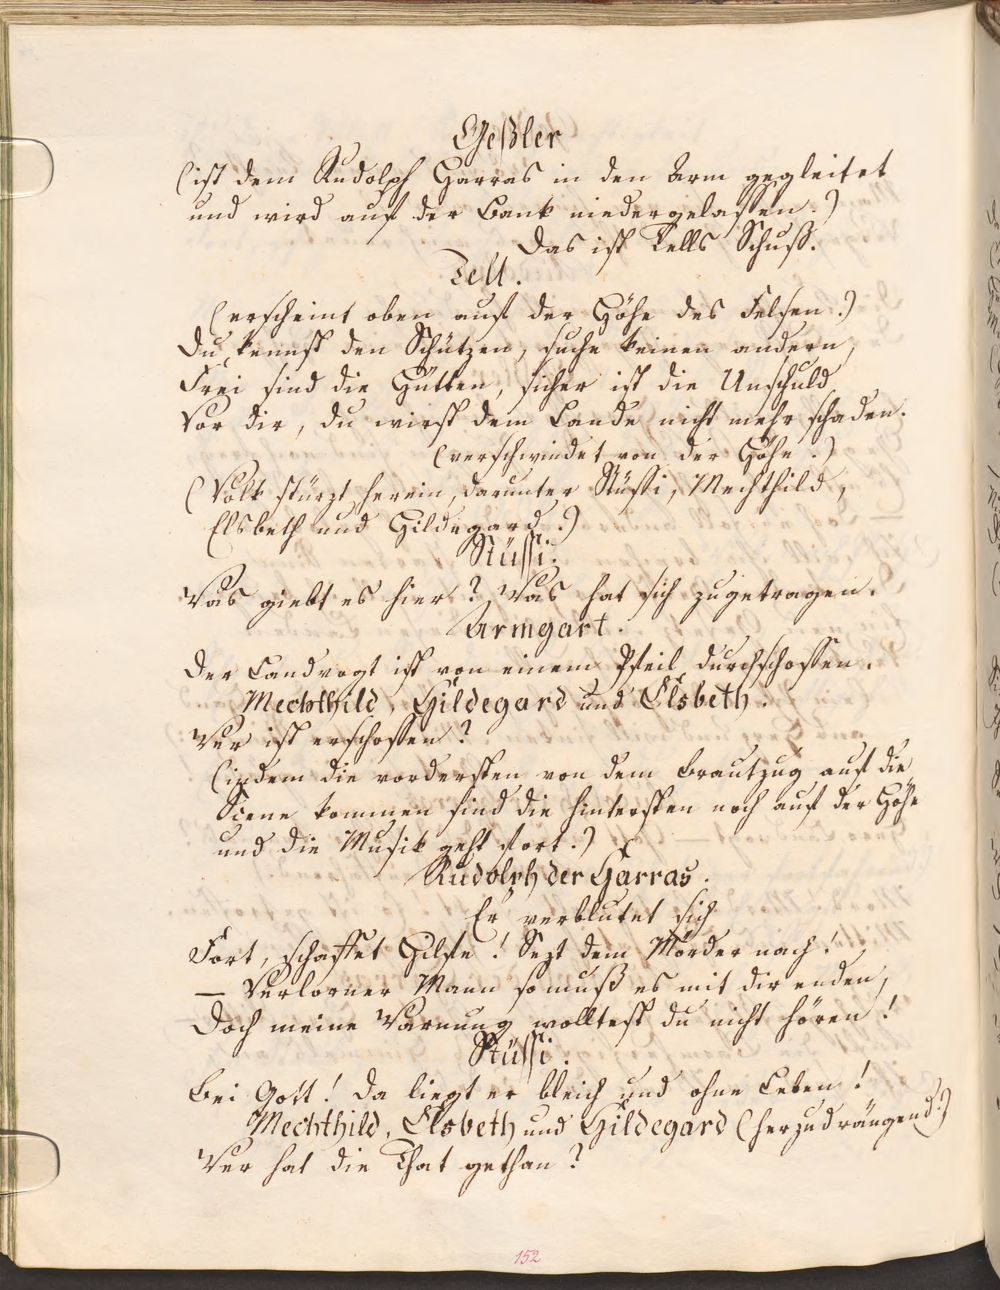 Geßler
(ist dem Rudolph Harras in den Arm gegleitet
und wird auf der Bank niedergelassen.)
Das ist Tells Schuß.
Tell.
(erscheint oben auf der Höhe des Felsen.)
Du kennst den Schützen, suche keinen andern,
Frei sind die Hütten, sicher ist die Unschuld
Vor dir, du wirst dem Lande nicht mehr schaden.
(verschwindet von der Höhe.)
(Volk stürzt herein, darunter Stüssi, Mechthild,
Elsbeth und Hildegard.)
Stüssi.
Was giebt es hier? Was hat sich zugetragen.
Armgart.
Der Landvogt ist von einem Pfeil durchschossen.
Mechthild, Hildegard und Elsbeth.
Wer ist erschossen?
(indem die vordersten von dem Brautzug auf die
Scene kommen sind die hintersten noch auf der Höhe
und die Musik geht fort.)
Rudolph der Harras.
Er verblutet sich
Fort, schaffet Hilfe! Sezt dem Mörder nach!
— Verlorner Mann so muß es mit dir enden,
Doch meine Warnung wolltest du nicht hören!
Stüssi.
Bei Gott! Da liegt er bleich und ohne Leben!
Mechthild, Elsbeth und Hildegard (herzudrängend.)
Wer hat die That gethan?
152